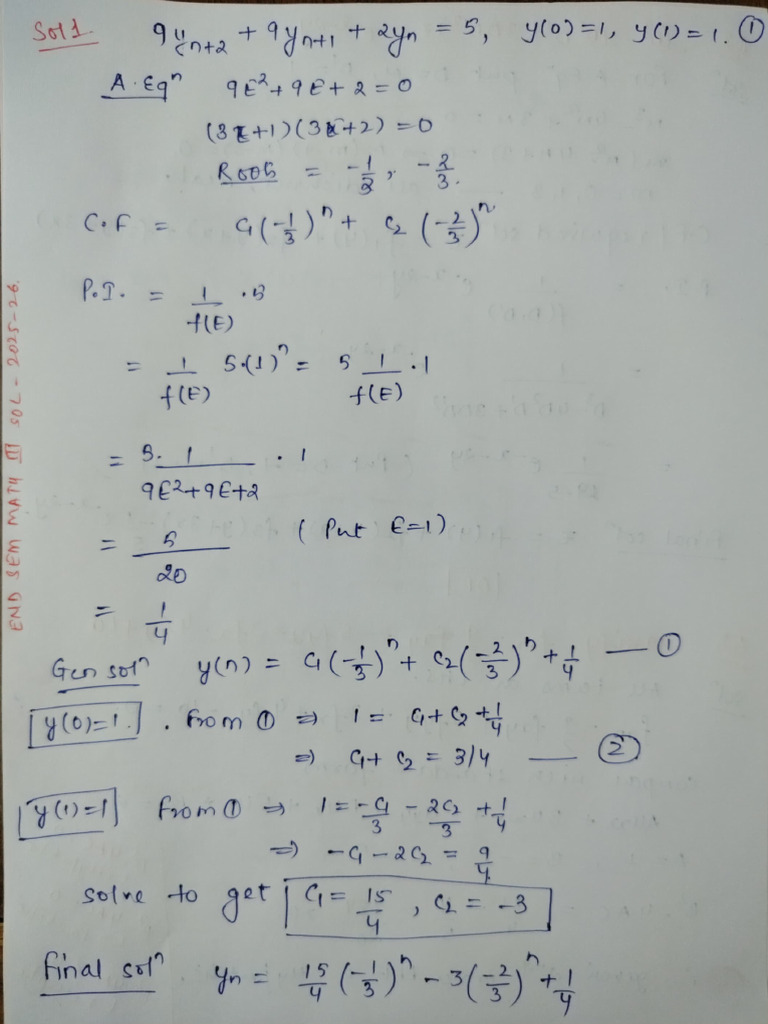 Sol 1. 9y_{n+2} + 9y_{n+1} + 2y_n = 5, y(0)=1, y(1)=1. ①
A. Eqⁿ 9E² + 9E + 2 = 0
(3E+1)(3E+2) = 0
Roots = -1/3, -2/3.
C.F = C₁(-1/3)ⁿ + C₂(-2/3)ⁿ
P.I. = 1/f(E) · 5
= 1/f(E) 5·(1)ⁿ = 5 1/f(E) · 1
= 5· 1/(9E²+9E+2) · 1
= 5/20 (Put E=1)
= 1/4
Gen solⁿ y(n) = C₁(-1/3)ⁿ + C₂(-2/3)ⁿ + 1/4 — ①
y(0)=1. . From ① ⇒ 1 = C₁ + C₂ + 1/4
⇒ C₁ + C₂ = 3/4 — ②
y(1)=1 From ① ⇒ 1 = -C₁/3 - 2C₂/3 + 1/4
⇒ -C₁ - 2C₂ = 9/4
solve to get C₁ = 15/4, C₂ = -3
Final solⁿ yₙ = 15/4 (-1/3)ⁿ - 3(-2/3)ⁿ + 1/4
END SEM MATH III SOL - 2025-26.